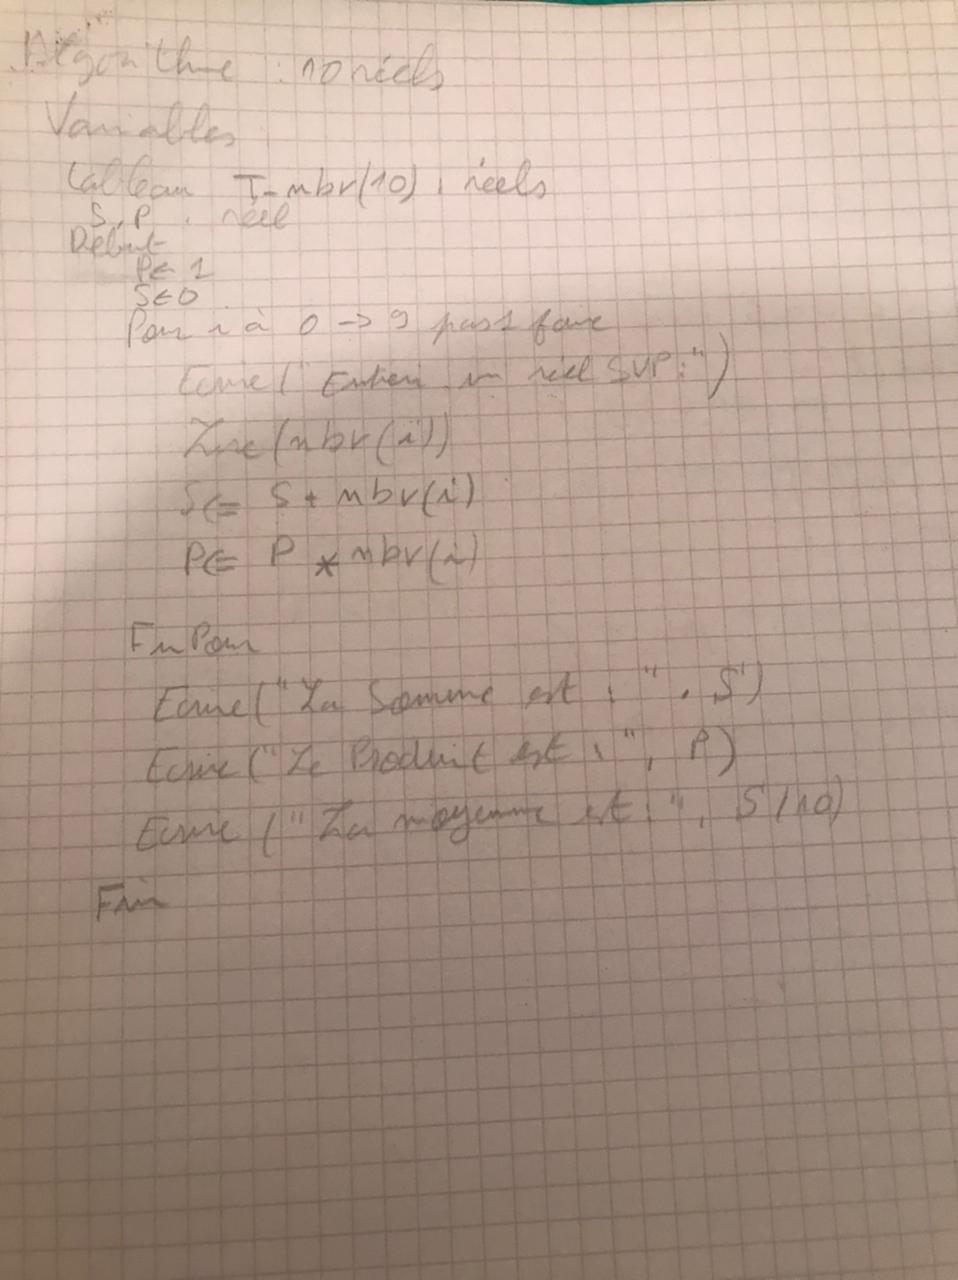 Algorithme : 10 réels
Variables
tableau T_nbr(10) : réels
S, P : réel
Début
P ← 1
S ← 0
Pour i à 0 → 9 pas 1 faire
Ecrire ("Entrer un réel SVP : ")
Lire (nbr(i))
S ⇐ S + nbr(i)
P ⇐ P * nbr(i)
FinPour
Ecrire ("La Somme est : ", S)
Ecrire ("Le Produit est : ", P)
Ecrire ("La moyenne est : ", S/10)
Fin